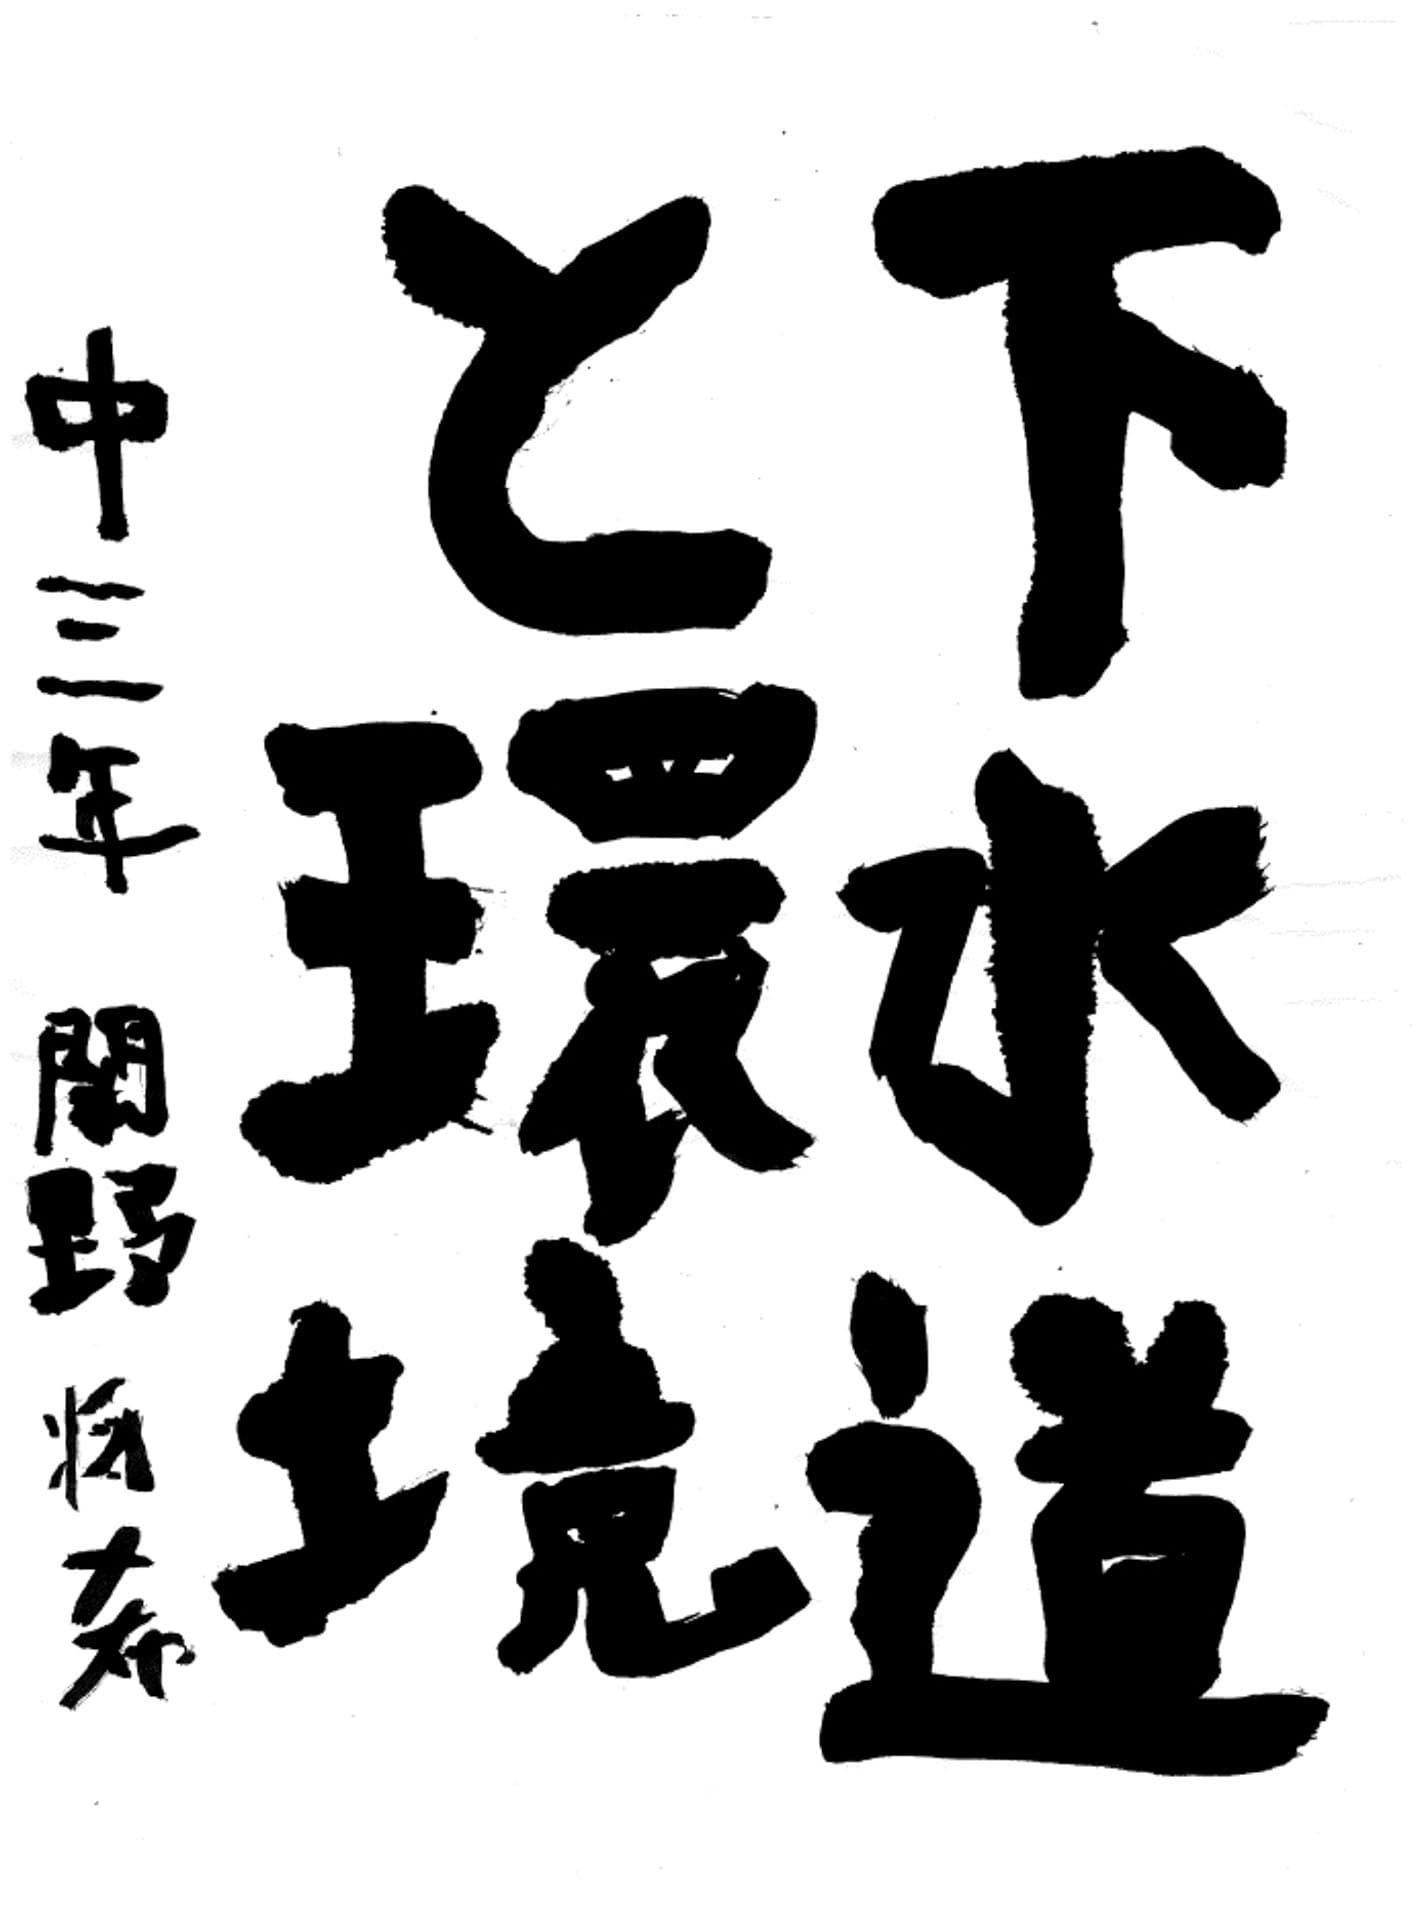 下水道
と環境
中三年 関野 将希